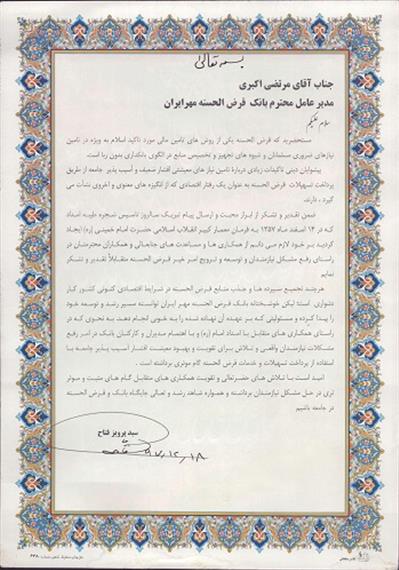 بسمه تعالی
جناب آقای مرتضی اکبری
مدیر عامل محترم بانک قرض الحسنه مهرایران
سلام علیکم
مستحضرید که قرض الحسنه یکی از روش های تامین مالی مورد تاکید اسلام به ویژه در تامین
نیازهای ضروری مسلمانان و شیوه های تجهیز و تخصیص منابع در الگوی بانکداری بدون ربا است.
پیشوایان دینی تاکیدات زیادی درباره تامین نیاز های معیشتی اقشار ضعیف و آسیب پذیر جامعه از طریق
پرداخت تسهیلات قرض الحسنه به عنوان یک رفتار اقتصادی که از انگیزه های معنوی و اخروی نشأت می
گیرد ، دارند.
ضمن تقدیر و تشکر از ابراز محبت و ارسال پیام تبریک سالروز تاسیس شجره طیبه امداد
که در ۱۴ اسفند ماه ۱۳۵۷ به فرمان معمار کبیر انقلاب اسلامی حضرت امام خمینی (ره) ایجاد
گردید بر خود لازم می دانم از همکاری ها و مساعدت های جنابعالی و همکاران محترمتان در
راستای رفع مشکل نیازمندان و توسعه و ترویج امر خیر قرض الحسنه متقابلاً تقدیر و تشکر
نمایم
هرچند تجمیع سپرده ها و جذب منابع قرض الحسنه در شرایط اقتصادی کنونی کشور کار
دشواری است؛ لیکن خوشبختانه بانک قرض الحسنه مهر ایران توانسته مسیر رشد و توسعه خود
را پیدا کرده و مسئولیتی که بر عهده آن نهاده شده را به خوبی انجام دهد به نحوی که در
راستای همکاری های متقابل با امداد امام (ره) و با اهتمام مدیران و کارکنان بانک در امر رفع
مشکلات نیازمندان واقعی و تلاش برای تقویت و بهبود معیشت اقشار آسیب پذیر جامعه با
استفاده از پرداخت تسهیلات و خدمات قرض الحسنه گام موثری برداشته است.
امید است با تلاش های حضرتعالی و تقویت همکاری های متقابل گام های مثبت و موثر
تری در حل مشکل نیازمندان برداشته و همواره شاهد رشد و تعالی جایگاه بانک و قرض الحسنه
در جامعه باشیم
سید پرویز فتاح
۹۷،۱۲،۱۸